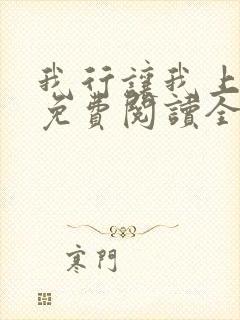 我行讓我上
免費閱讀全
寒門